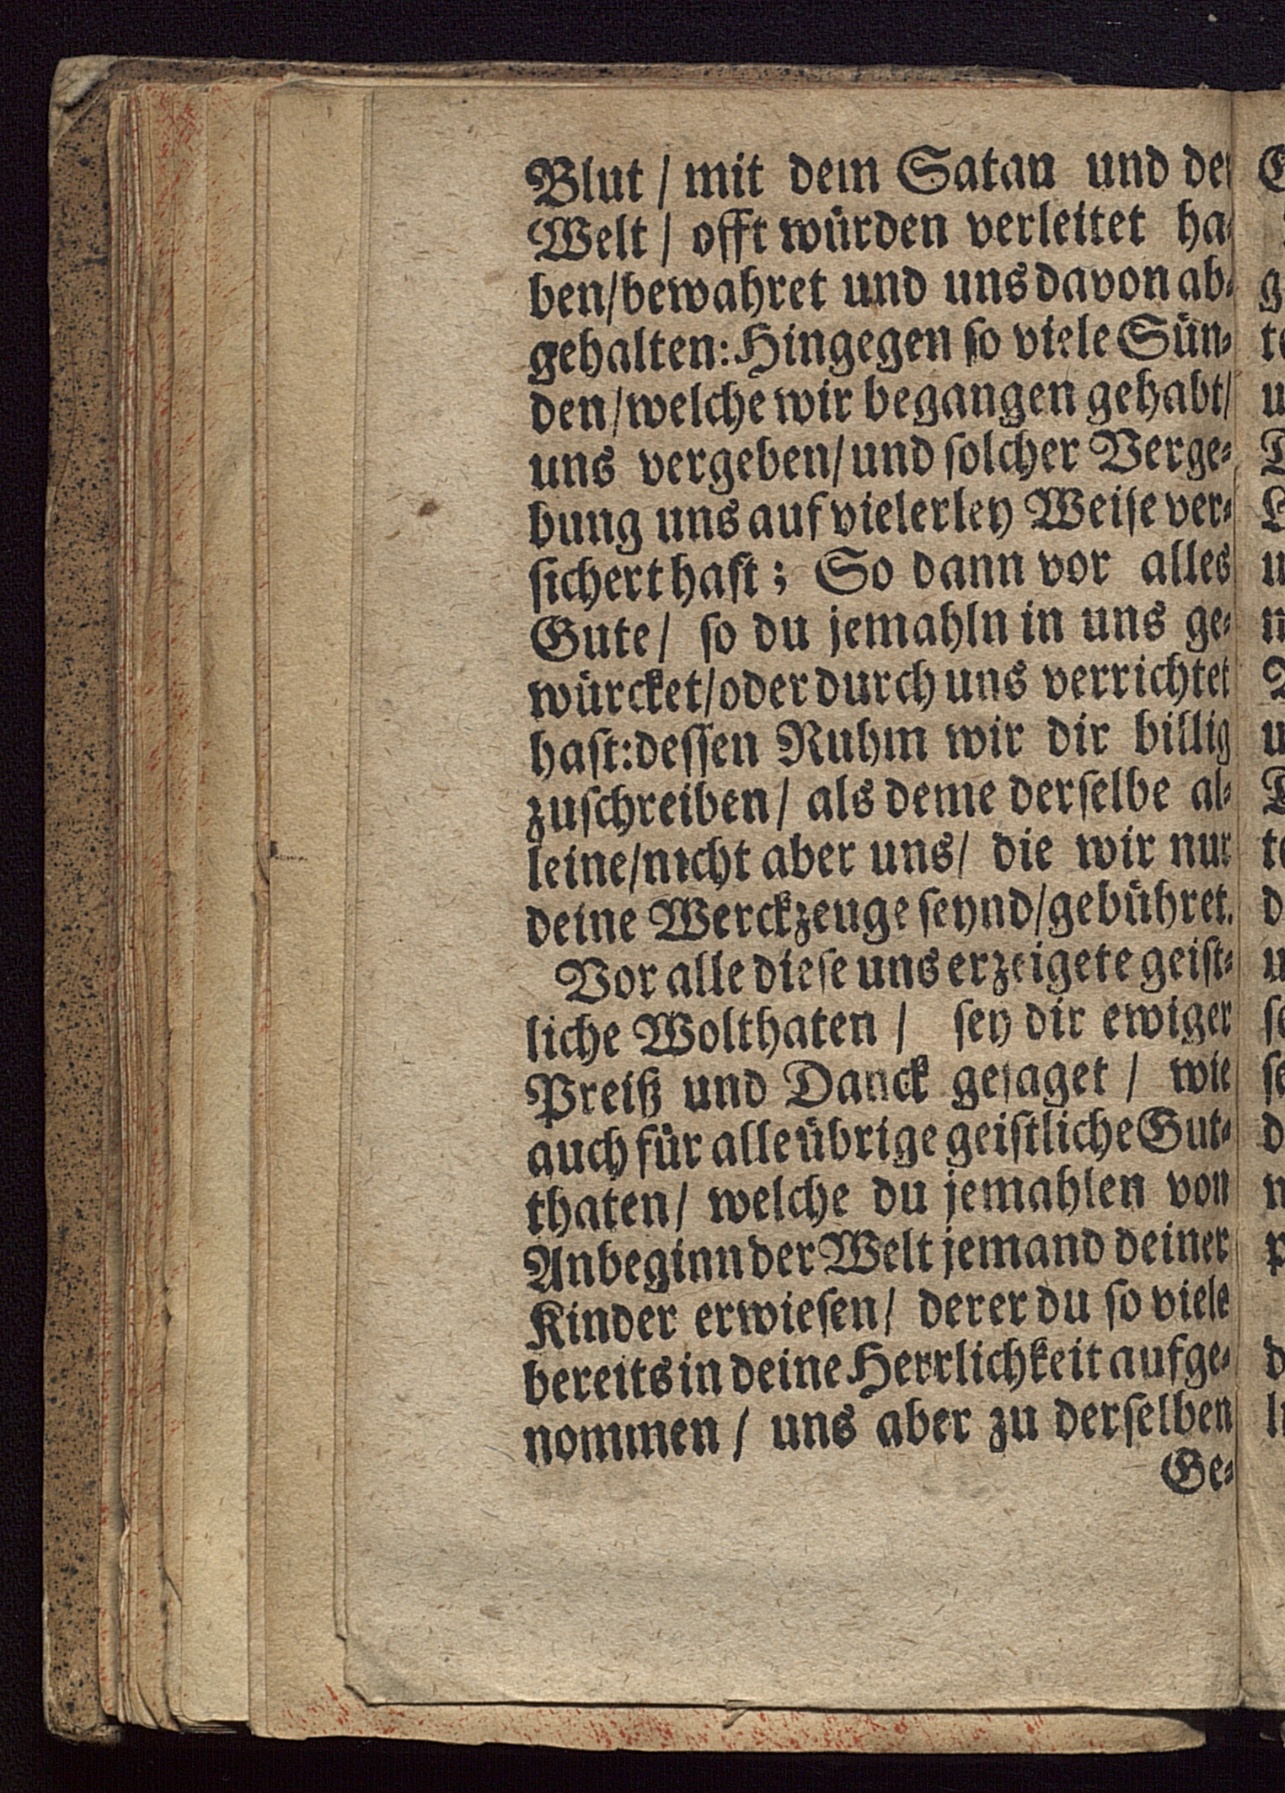 Blut / mit dem Satan und der
Welt / offt würden verleitet ha-
ben/bewahret und uns davon ab-
gehalten: Hingegen ſo viele Sün-
den/welche wir begangen gehabt/
uns vergeben/und ſolcher Verge-
bung uns auf vielerley Weiſe ver-
ſichert haſt; So dann vor alles
Gute/ ſo du jemahln in uns ge-
würcket/oder durch uns verrichtet
haſt: deſſen Ruhm wir dir billig
zuſchreiben/ als deme derſelbe al-
leine/nicht aber uns/ die wir nur
deine Werckzeuge ſeynd/gebühret.
Vor alle dieſe uns erzeigete geiſt-
liche Wolthaten / ſey dir ewiger
Preiß und Danck geſaget / wie
auch für alle übrige geiſtliche Gut-
thaten/ welche du jemahlen von
Anbeginn der Welt jemand deiner
Kinder erwieſen/ derer du ſo viele
bereits in deine Herrlichkeit aufge-
nommen / uns aber zu derſelben
Ge-